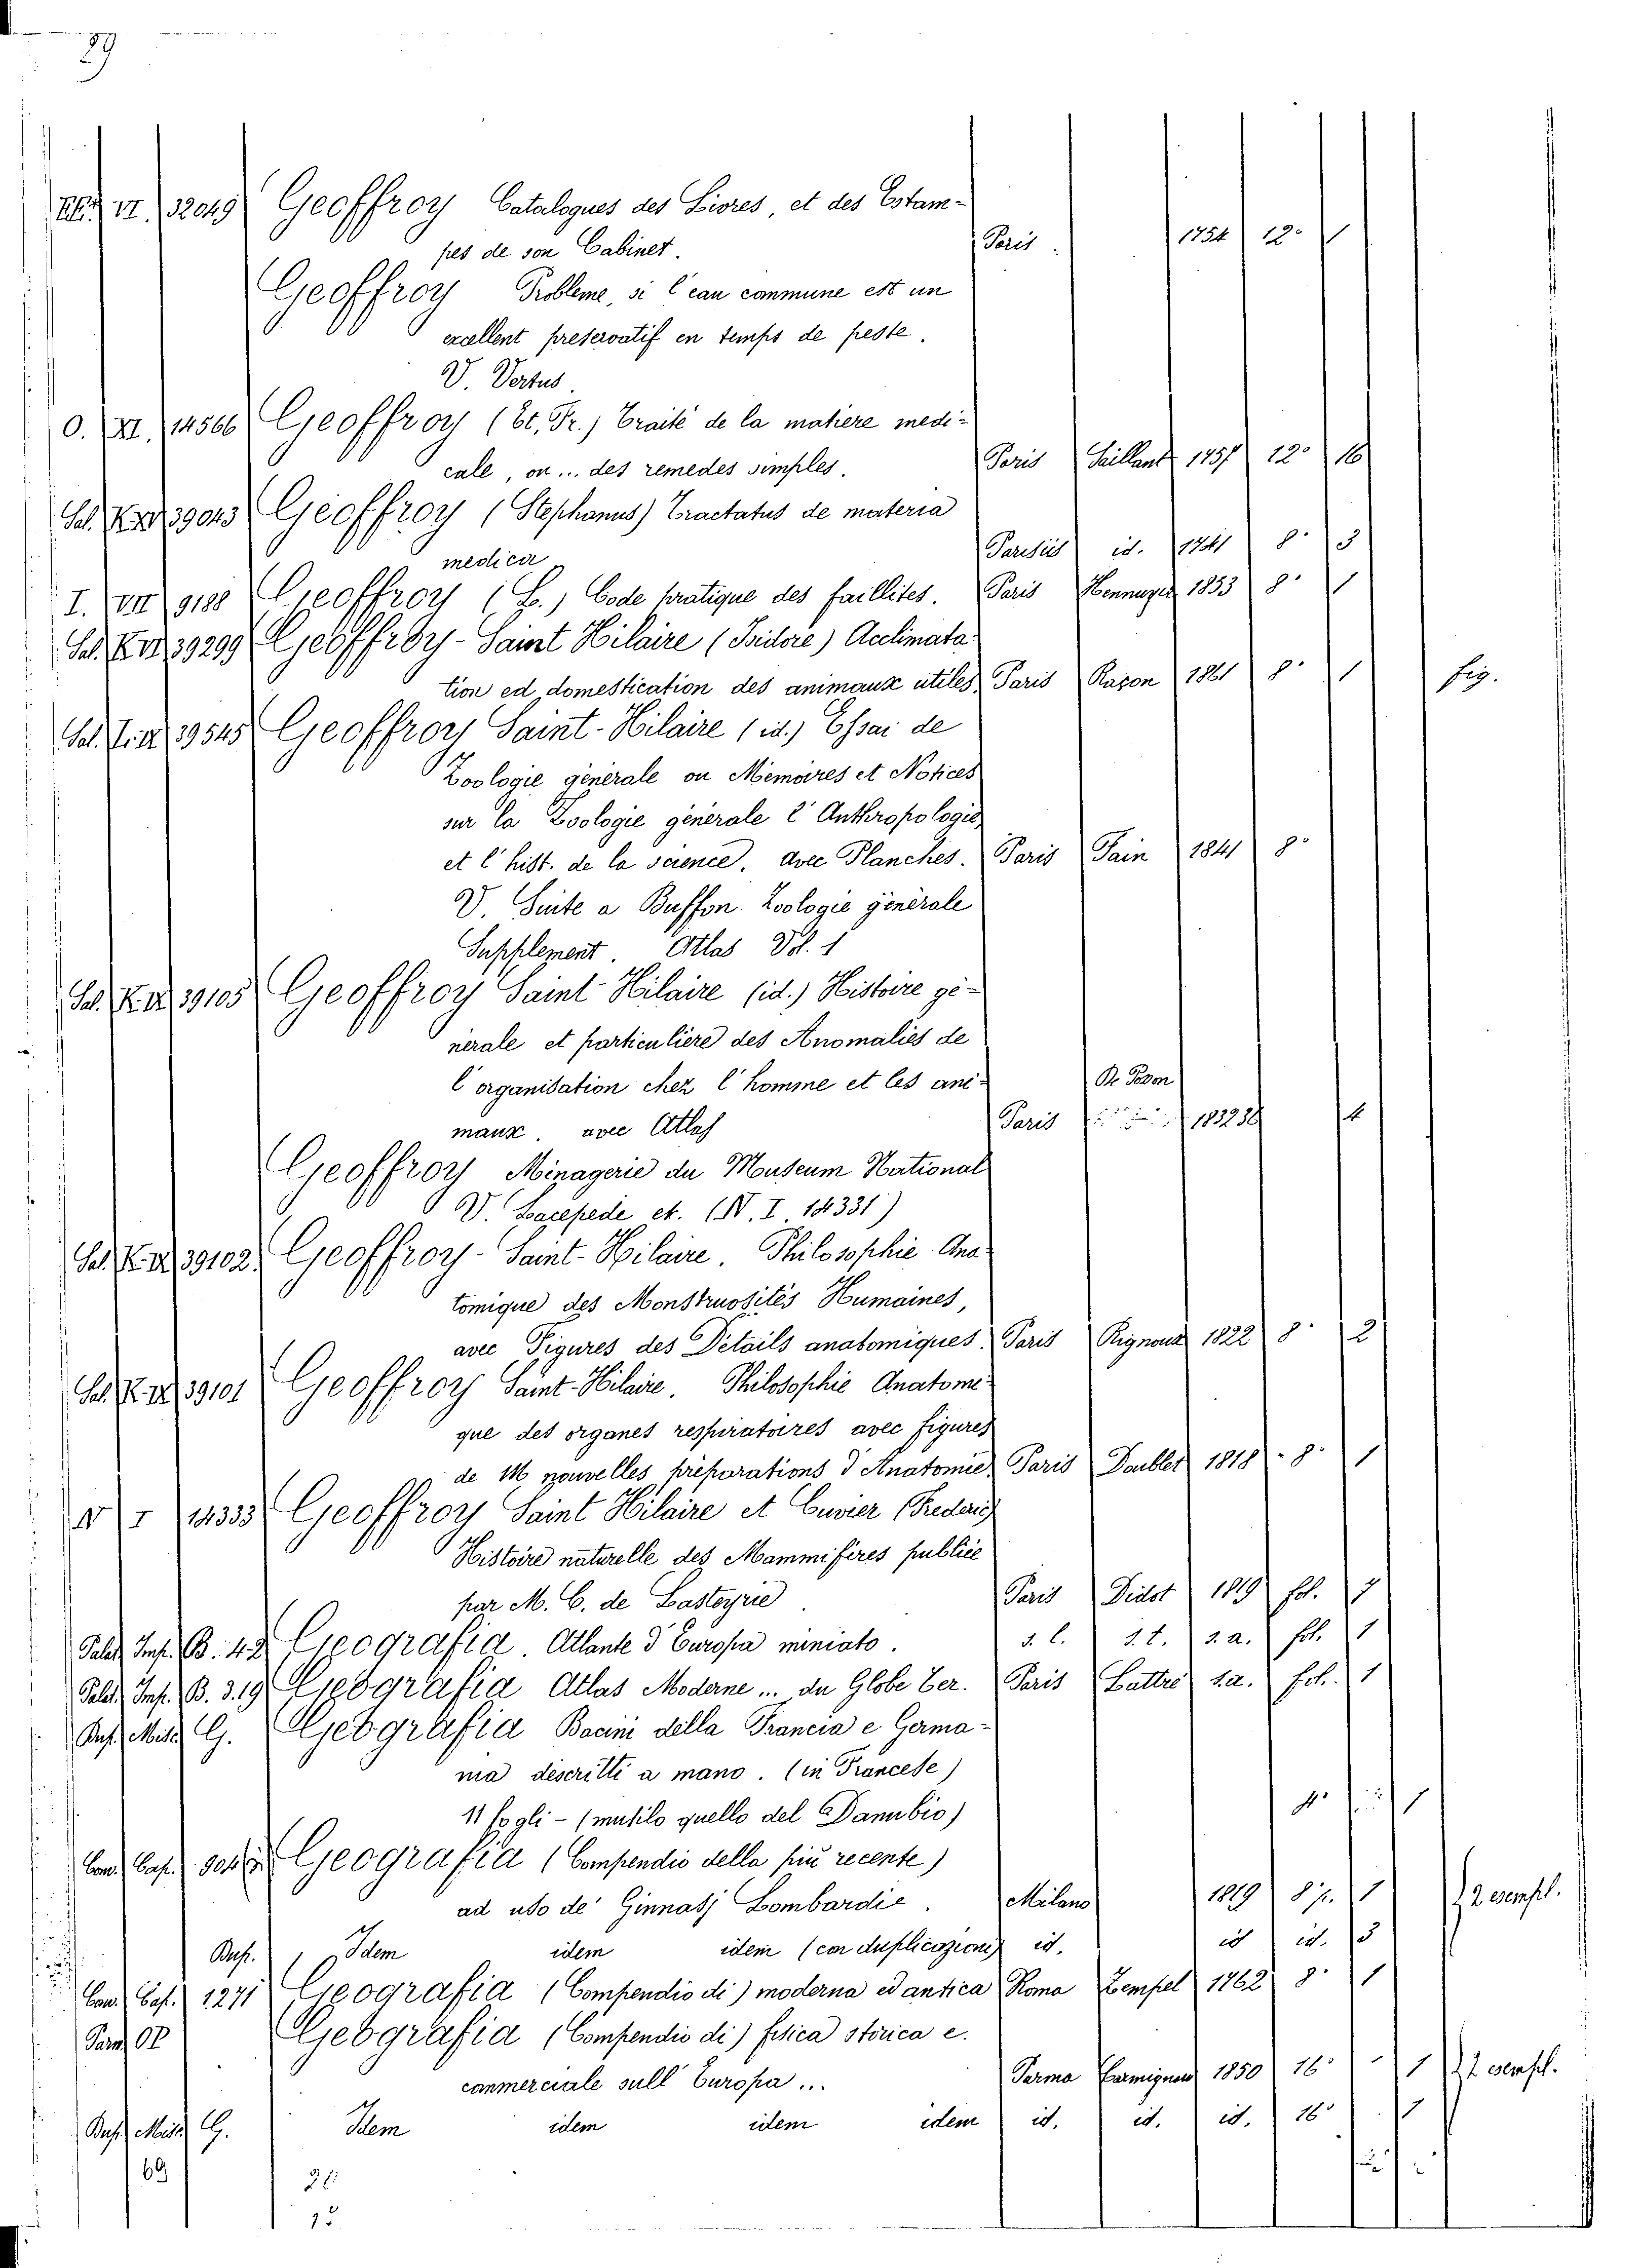 89
VI. 32049 Geoffroy Catalogues des Livres, et des Estam-
pes de son Cabinet. Paris. 1754 12° 1
Geoffroy Probleme, si l'eau commune est un
excellent preservatif en temps de peste.
V. Vertus
O. XI. 14566 Geoffroy (Et. Fr.) Traité de la matiere medi-
cale, ou... des remedes simples. Paris Saillant 1757 12° 16
Sal. 39043 Geoffroy (Stephanus) Tractatus de materia
medica Parisiis id. 1741 8° 3
I. VII 9188 Geoffroy (E.) Code pratique des faillites. Paris Hennuyer 1853 8° 1
Sal. 39299 Geoffroy-Saint Hilaire (Isidore) Acclimata-
tion ed domestication des animaux utiles Paris Raçon 1861 8° 1 fig.
Sal. 39545 Geoffroy Saint-Hilaire (id.) Essai de
Zoologie générale ou Mémoires et Notices
sur la Zoologie générale l'Anthropologie,
et l'hist. de la science, avec Planches. Paris Fain 1841 8°
V. Suite a Buffon. Zoologie générale
Supplement. Atlas Vol. 1
Sal. 39105 Geoffroy Saint-Hilaire (id.) Histoire gé-
nérale et particuliere des Anomalies de
l'organisation chez l'homme et les ani-
maux. avec Atlas Paris 4
Geoffroy Ménagerie du Museum National
V. Lacepede et. (N. I. 14331)
Sal. 39102. Geoffroy-Saint-Hilaire. Philosophie Ana-
tomique des Monstruosités Humaines,
avec Figures des Détails anatomiques. Paris Rignoux 1822 8° 2
Sal. 39101 Geoffroy Saint-Hilaire. Philosophie Anatomi-
que des organes respiratoires avec figures
de 116 nouvelles préparations d'Anatomie. Paris Doublet 1818 8° 1
N I 14333 Geoffroy Saint Hilaire et Cuvier (Frederic)
Histoire naturelle des Mammifères publiée
par M. C. de Lasteyrie Paris Didot 1819 fol. 7
Palat. Imp. B. 42 Geografia. Atlante d'Europa miniato. s. l. s. t. s. a. fol. 1
Palat. Imp. B. 3.19 Geografia Atlas Moderne... du Globe Ter. Paris Lattré s.a. fol. 1
Misc. G. Geografia Bacini della Francia e Germa-
nia descritti a mano. (in Francese)
11 fogli - (mutilo quello del Danubio) 4° 1
Cas. Geografia (Compendio della più recente)
ad uso de' Ginnasj Lombardie. Milano 1819 8° 1 2 esempl.
Idem idem idem (con duplicazione) id. id id. 3
Cas. 1271 Geografia (Compendio di) moderna ed antica Roma Zempel 1762 8° 1
Geografia (Compendio di) fisica storica e.
commerciale sull'Europa... Parma Carmignani 1850 16° 1 2 esempl.
Misc. G. Idem idem idem idem id. id. id. 16° 1
69